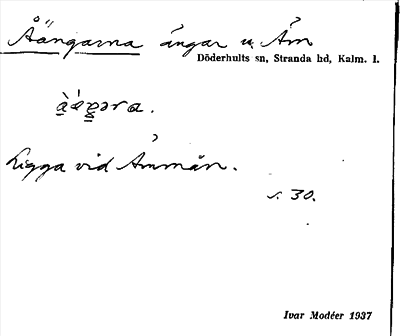 Åängarna ängar u. Åm
Döderhults sn, Stranda hd, Kalm. l.
Ligga vid Åmmån.
s. 30.
Ivar Modéer 1937